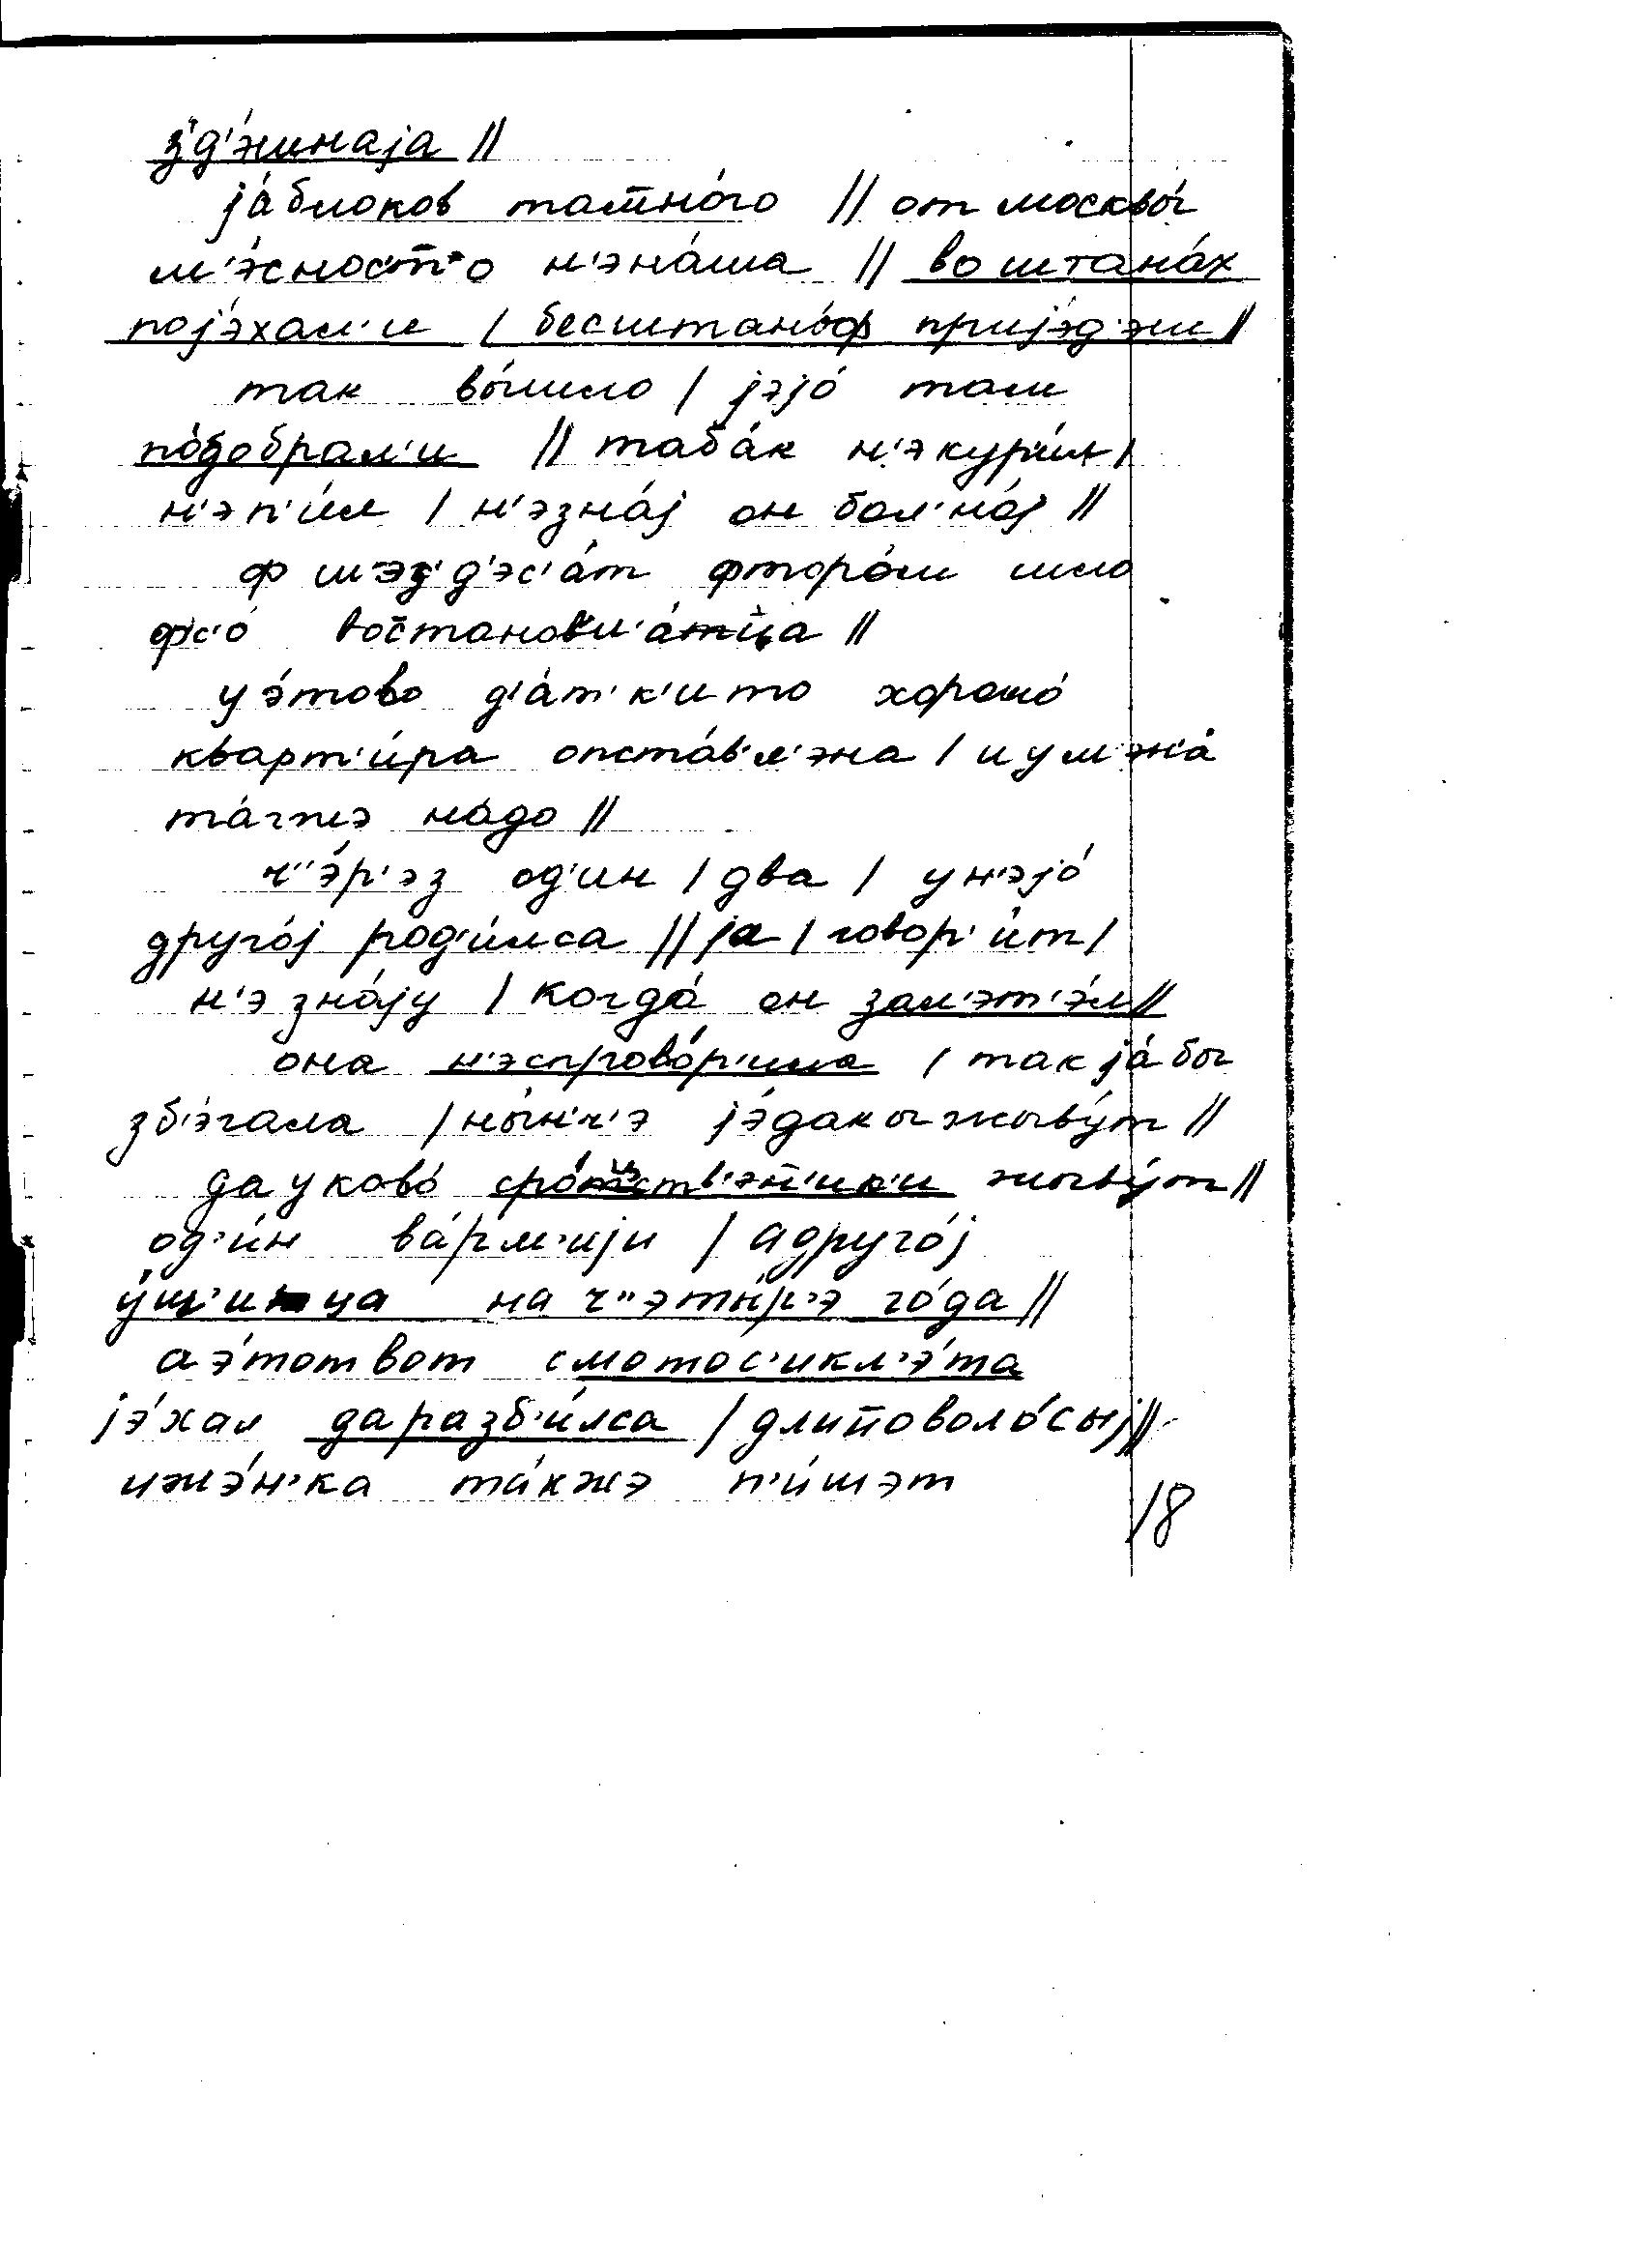 з'д'э́шнаја //
ја́блоков там̄но́го // от москвы́
м'э́сност'т'о н'эна́ша // во штана́х
појэ́хал'и / бесштано́ф пријэ́д'эш //
так вы́шло / јэјо́ там
по́дobрал'и // таба́к н'экур'и́л /
н'эп'и́л / н'эзна́ј он бол'но́ј //
ф шэз'д'эс'а́т фторо́м шло
фс'о́ востановл'а́тца //
у э́тово д'а́т'к'ито хорошо́
кварт'и́ра опста́вл'эна / и у м'эн'а́
та́гжэ на́до //
ч''э́р'эз од'ин / два / ун'эјо́
друго́ј род'и́лса // ја / говор'и́т /
н'э зна́ју / когда́ он зал'эт'э́л //
она н'эспрогово́р'ила / так ја́ бы
зб'э́гала / ны́н'ч'э јэ́дакы жыву́т //
да у ково́ сро́тств'эн̄'ик'и жыву́т //
од'и́н ва́рм'ији / адруго́ј
у́ш'ица на ч''эты́р'э го́да //
а э́тот вот смотос'икл'э́та
јэ́хал да разб'и́лса / длин̄оволо́сыј //
ижэ́н'ка та́кжэ п'и́шэт
18